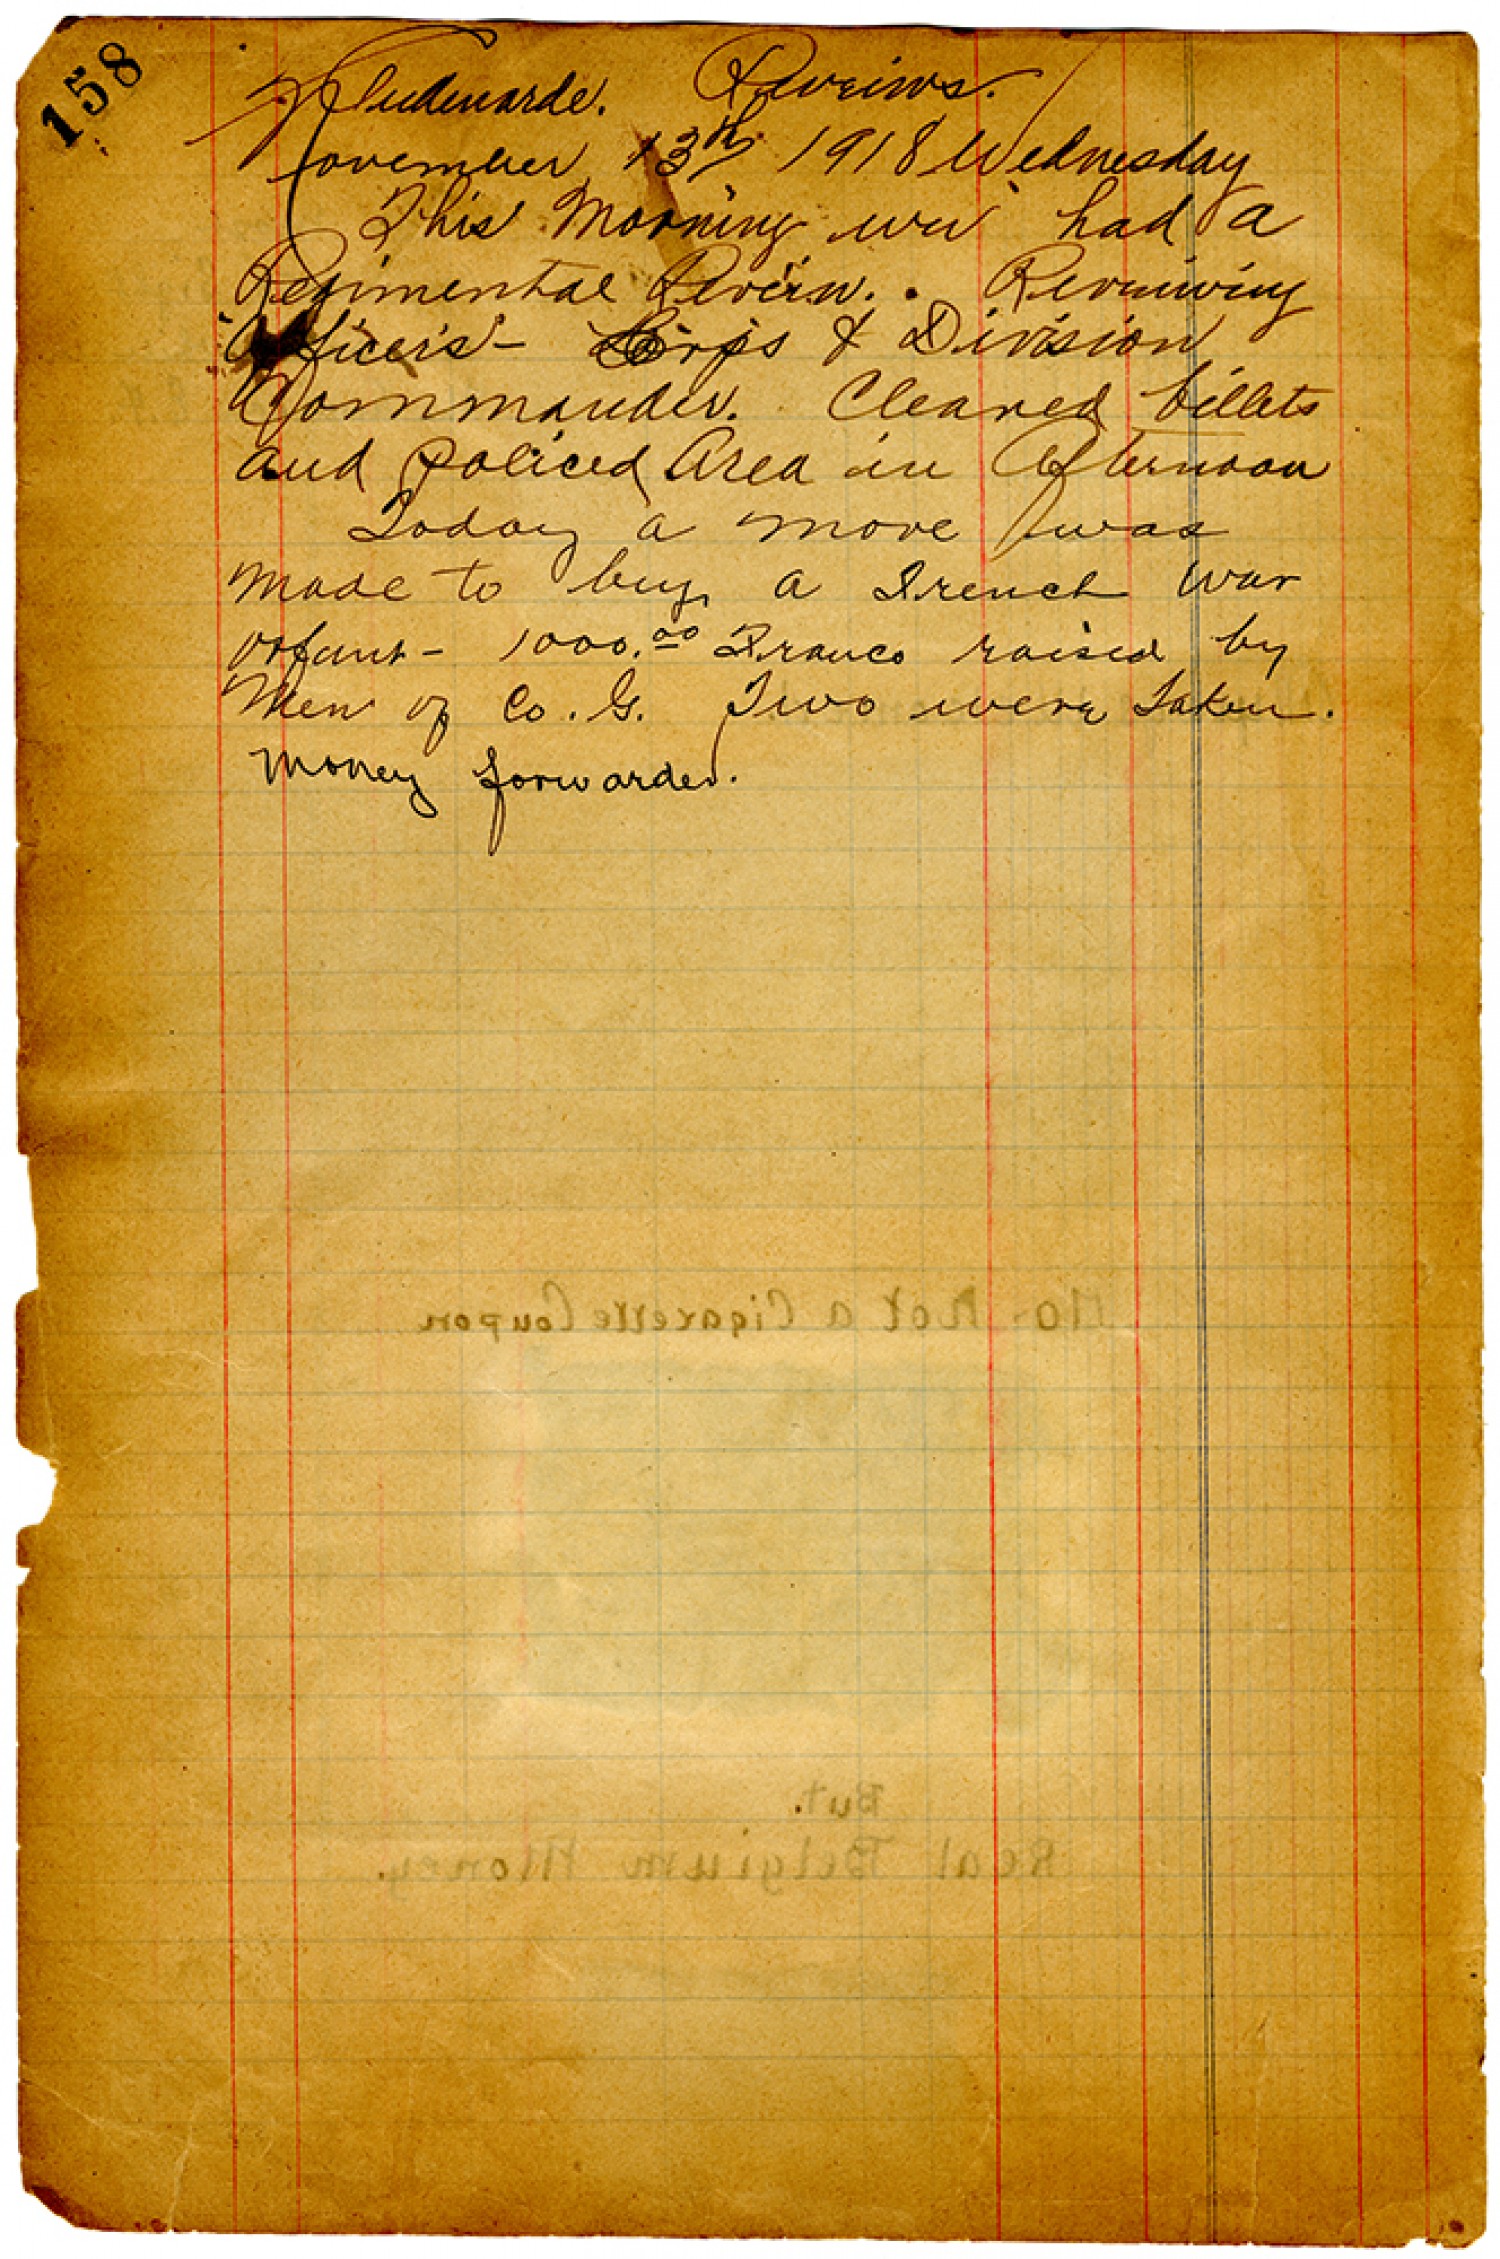 158
Audenarde. Reveiws.
November 13th 1918 Wednesday
This Morning we had a
Regimental Reveiw. Reveiwing
Officers - Corps & Division
Commander. Cleaned billets
and Policed Area in Afternoon
Today a move was
made to buy a French War
orfant - 1000.00 Francs raised by
Men of Co. G. Two were taken.
Money forwarded.
No - Not a Cigarette Coupon
But.
Real Belgium Money.